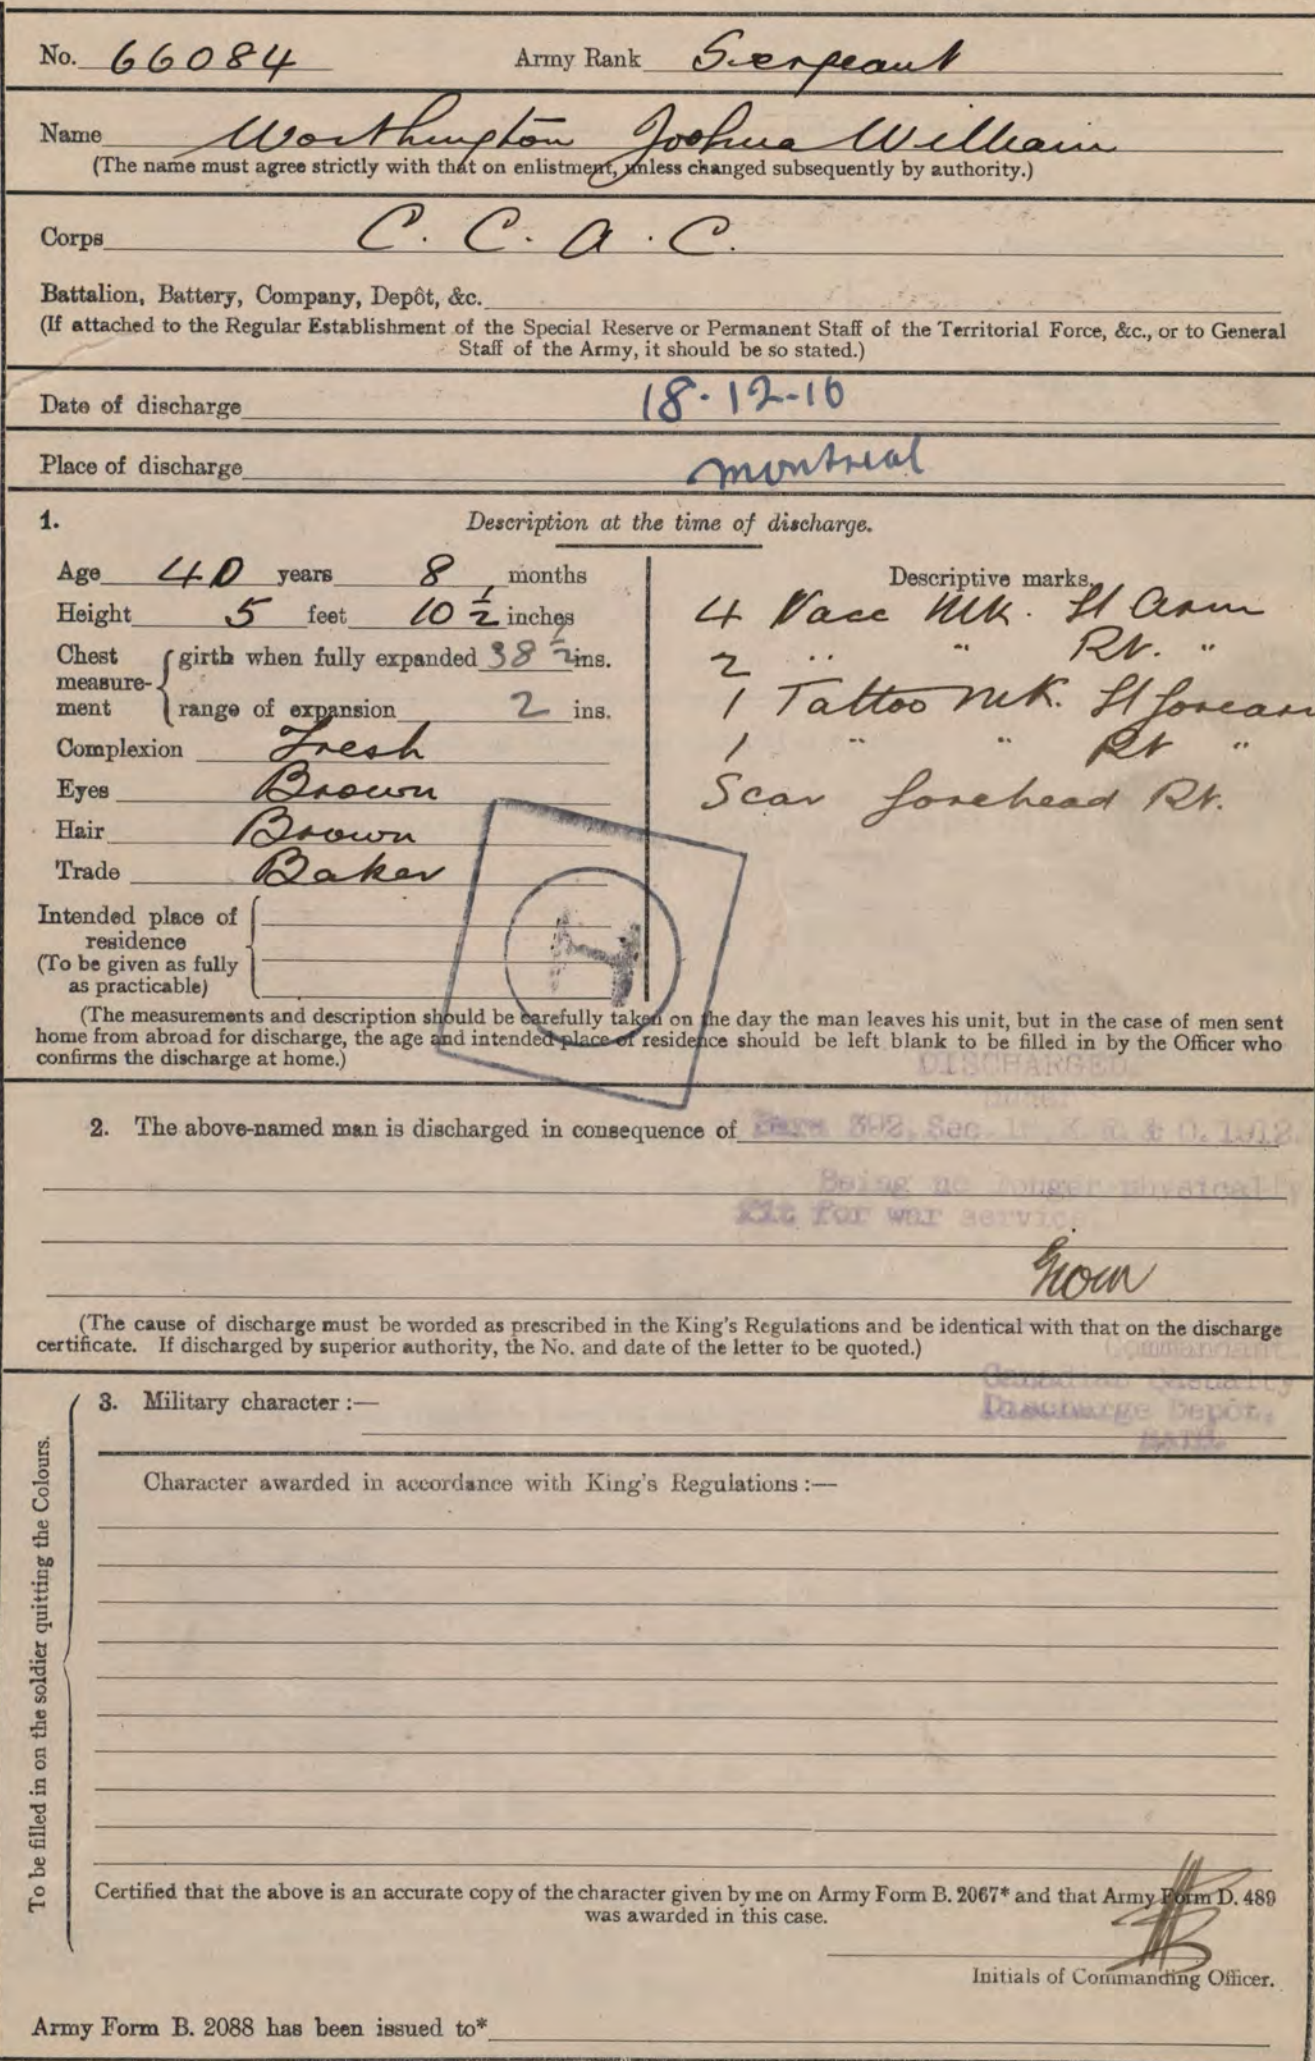 No. 66084 Army Rank Sergeant
Name Worthington Joshua William
(The name must agree strictly with that on enlistment, unless changed subsequently by authority.)
Corps C. C. A. C.
Battalion, Battery, Company, Depôt, &c.
(If attached to the Regular Establishment of the Special Reserve or Permanent Staff of the Territorial Force, &c., or to General
Staff of the Army, it should be so stated.)
Date of discharge 18-12-16
Place of discharge Montreal
1. Description at the time of discharge.
Age 40 years 8 months
Height 5 feet 10 1/2 inches
Chest measurement girth when fully expanded 38 1/2 ins.
range of expansion 2 ins.
Complexion Fresh
Eyes Brown
Hair Brown
Trade Baker
Intended place of
residence
(To be given as fully
as practicable)
Descriptive marks.
4 Vacc Mk. Lt Arm
2 " " Rt. "
1 Tattoo Mk. Lt forearm
1 " " Rt "
Scar forehead Rt.
H
(The measurements and description should be carefully taken on the day the man leaves his unit, but in the case of men sent
home from abroad for discharge, the age and intended place of residence should be left blank to be filled in by the Officer who
confirms the discharge at home.)
DISCHARGED
under
2. The above-named man is discharged in consequence of Para 392, Sec. K. R. & O. 1912.
Being no longer physically
fit for war service.
(The cause of discharge must be worded as prescribed in the King's Regulations and be identical with that on the discharge
certificate. If discharged by superior authority, the No. and date of the letter to be quoted.)
Commandant
Canadian Casualty
Discharge Depôt,
BATH.
To be filled in on the soldier quitting the Colours.
3. Military character :—
Character awarded in accordance with King's Regulations :—
Certified that the above is an accurate copy of the character given by me on Army Form B. 2067* and that Army Form D. 489
was awarded in this case.
Initials of Commanding Officer.
Army Form B. 2088 has been issued to*